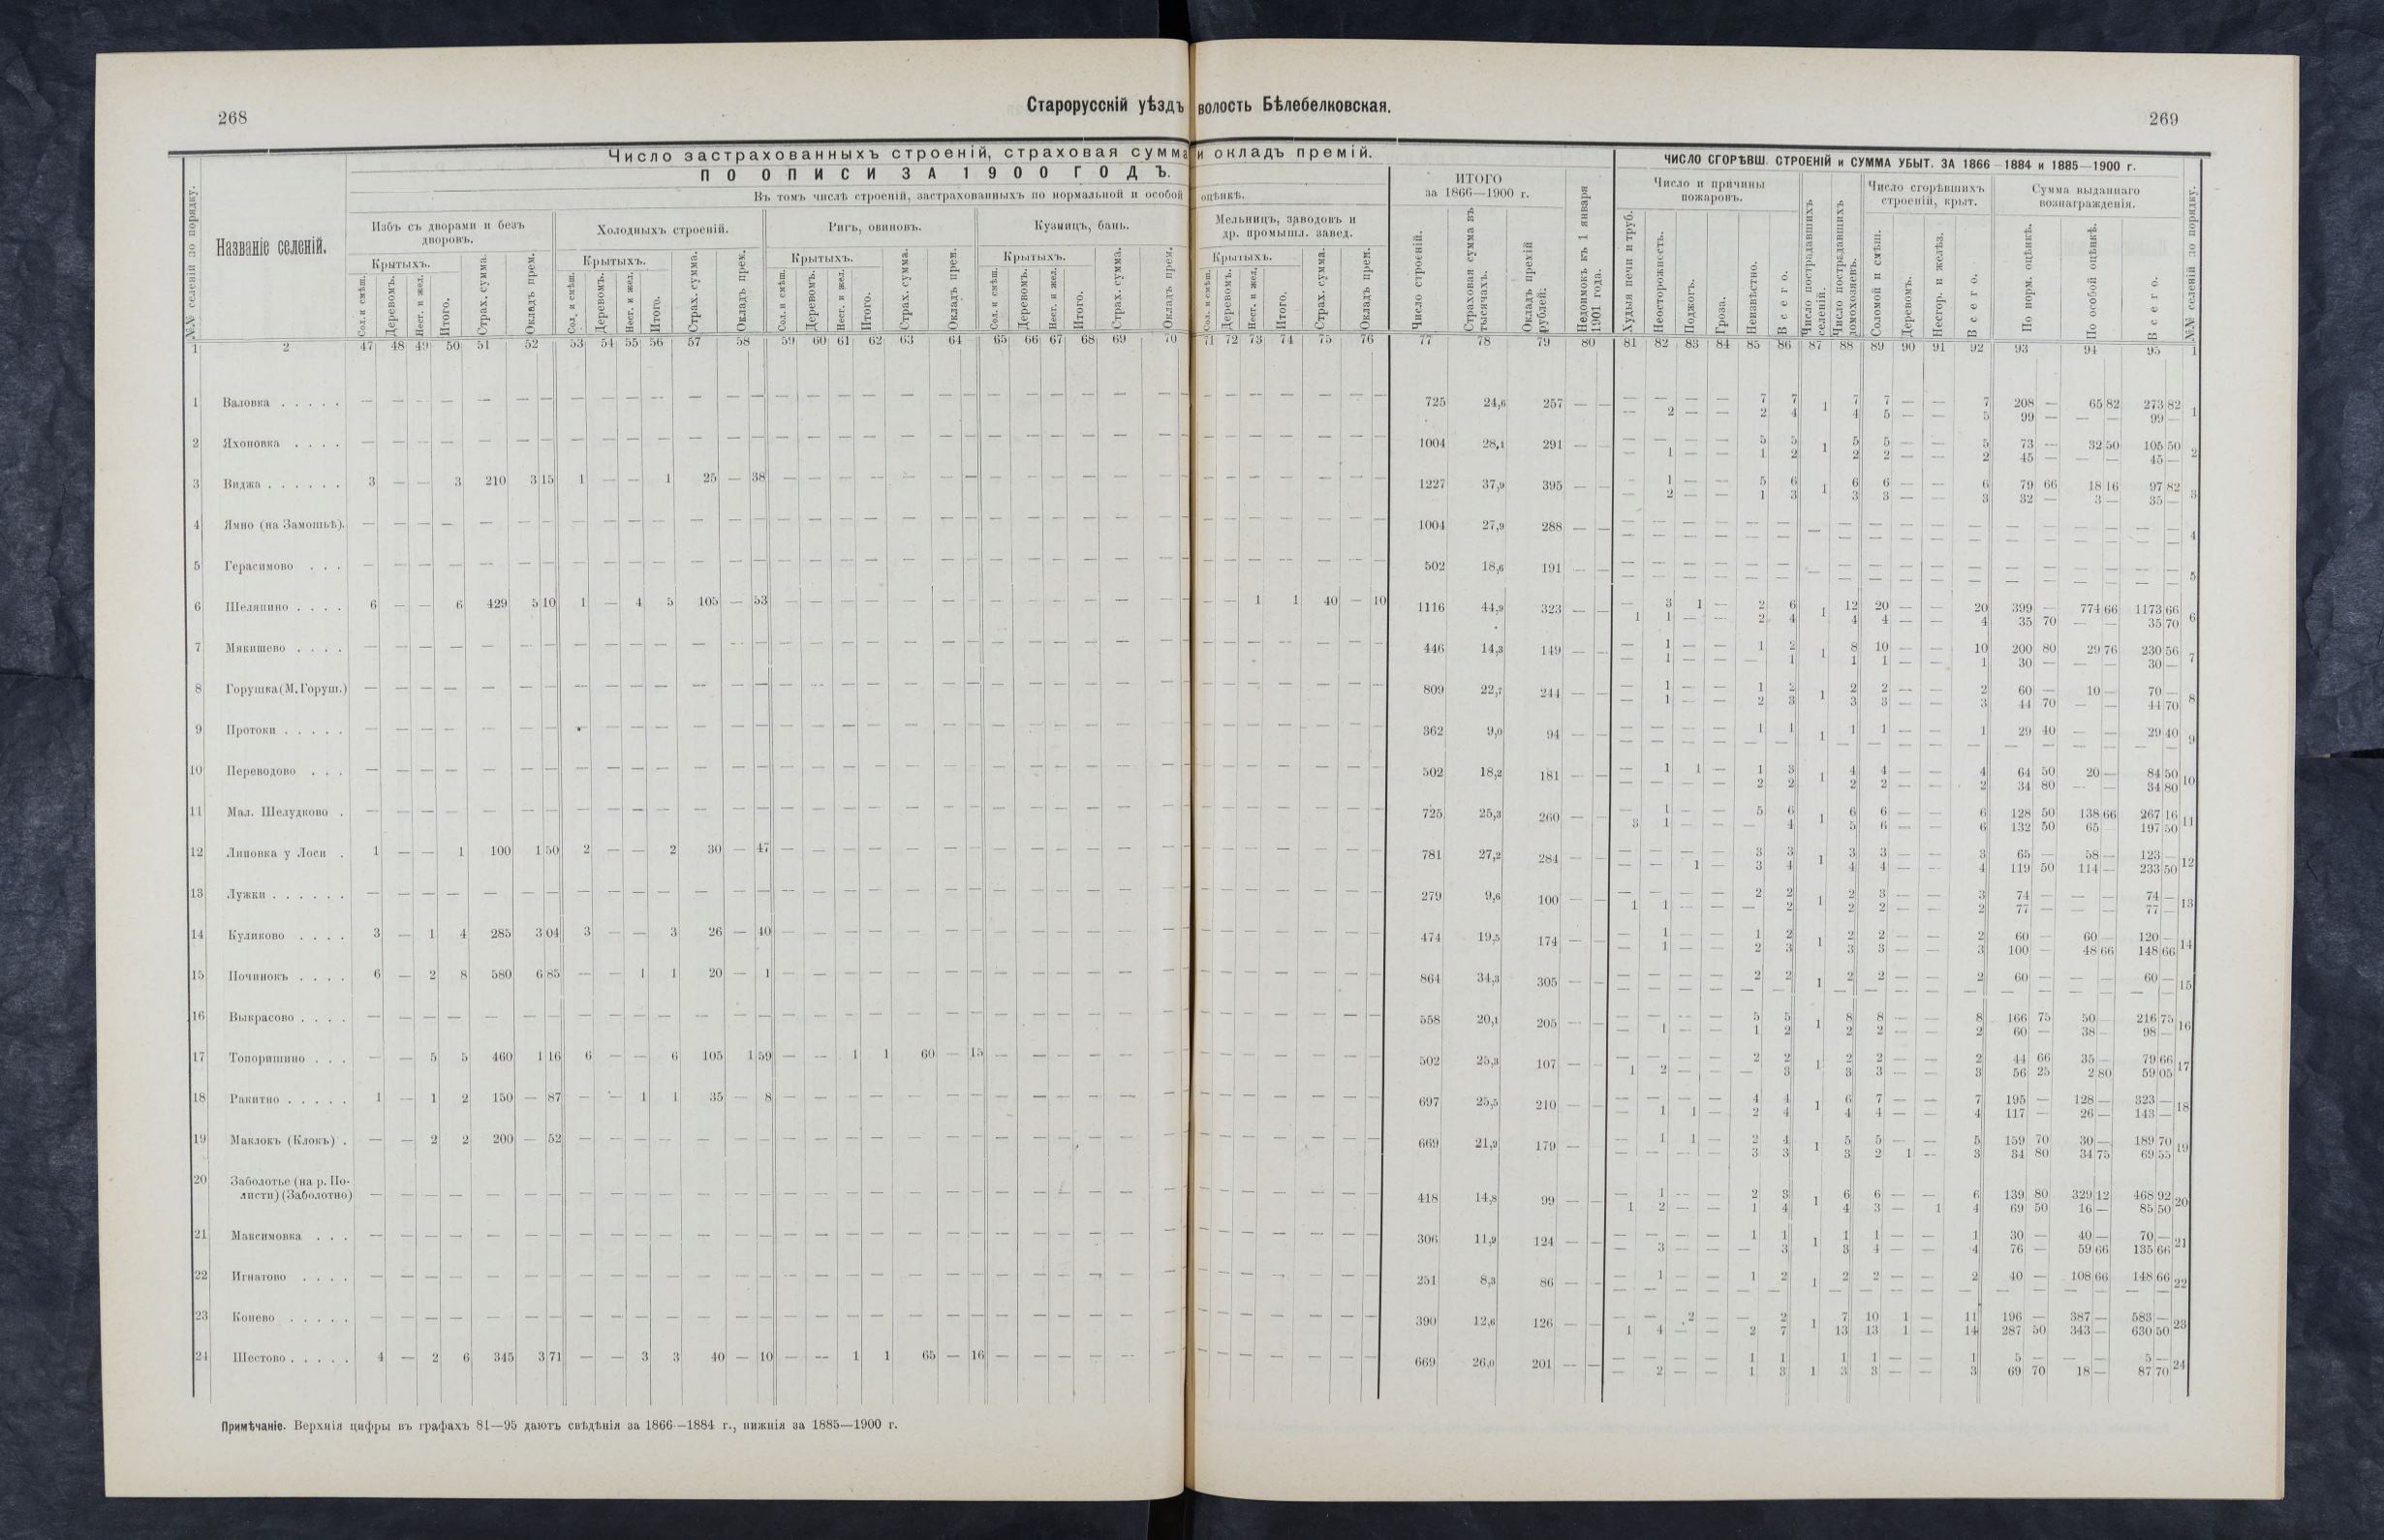 268
Старорусскій уѣздъ волость Бѣлебелковская.
269
Число застрахованныхъ строеній, страховая сумма и окладъ премій.
ПО ОПИСИ ЗА 1900 ГОДЪ.
Въ томъ числѣ строеній, застрахованныхъ по нормальной и особой оцѣнкѣ.
ИТОГО за 1866—1900 г.
ЧИСЛО СГОРѢВШ. СТРОЕНІЙ и СУММА УБЫТ. ЗА 1866—1884 и 1885—1900 г.
№№ селеній по порядку.
Названіе селеній.
Избъ съ дворами и безъ дворовъ.
Холодныхъ строеній.
Ригъ, овиновъ.
Кузницъ, бань.
Мельницъ, заводовъ и др. промышл. завед.
Число и причины пожаровъ.
Число сгорѣвшихъ строеній, крыт.
Сумма выданнаго вознагражденія.
Крытыхъ. Крытыхъ. Крытыхъ. Крытыхъ. Крытыхъ.
Сол. и смѣш. Деревомъ. Нест. и жел. Итого. Страх. сумма. Окладъ прем.
Сол. и смѣш. Деревомъ. Нест. и жел. Итого. Страх. сумма. Окладъ прем.
Сол. и смѣш. Деревомъ. Нест. и жел. Итого. Страх. сумма. Окладъ прем.
Сол. и смѣш. Деревомъ. Нест. и жел. Итого. Страх. сумма. Окладъ прем.
Сол. и смѣш. Деревомъ. Нест. и жел. Итого. Страх. сумма. Окладъ прем.
Число строеній. Страховая сумма въ тысячахъ. Окладъ премій рублей. Недоимокъ къ 1 января 1901 года.
Худыя печи и труб. Неосторожность. Поджогъ. Гроза. Неизвѣстно. Всего.
Число пострадавшихъ селеній. Число пострадавшихъ домохозяевъ.
Соломой и смѣш. Деревомъ. Несгор. и желѣз. Всего.
По норм. оцѣнкѣ. По особой оцѣнкѣ. Всего. №№ селеній по порядку.
1 2 47 48 49 50 51 52 53 54 55 56 57 58 59 60 61 62 63 64 65 66 67 68 69 70 71 72 73 74 75 76 77 78 79 80 81 82 83 84 85 86 87 88 89 90 91 92 93 94 95 1
1 Валовка . . . . . — — — — — — — — — — — — — — — — — — — — — — — — — — — — — — 725 24,6 257 — — — — — — 7 7 1 7 7 — — 7 208 — 65 82 273 82 1
— 2 — — 2 4 4 5 — — 5 99 — — — 99 —
2 Яхоновка . . . . — — — — — — — — — — — — — — — — — — — — — — — — — — — — — — 1004 28,1 291 — — — — — — 5 5 1 5 5 — — 5 73 — 32 50 105 50 2
— 1 — — 1 2 2 2 — — 2 45 — — — 45 —
3 Виджа . . . . . . 3 — — 3 210 3 15 1 — — 1 25 — 38 — — — — — — — — — — — — — — — — — — 1227 37,9 395 — — — 1 — — 5 6 1 6 6 — — 6 79 66 18 16 97 82 3
— 2 — — 1 3 3 3 — — 3 32 — 3 — 35 —
4 Ямно (на Замошьѣ). — — — — — — — — — — — — — — — — — — — — — — — — — — — — — — 1004 27,9 288 — — — — — — — — — — — — — — — — — — — — 4
— — — — — — — — — — — — — — — — —
5 Герасимово . . . — — — — — — — — — — — — — — — — — — — — — — — — — — — — — — 502 18,6 191 — — — — — — — — — — — — — — — — — — — — 5
— — — — — — — — — — — — — — — — —
6 Шеляпино . . . . 6 — — 6 429 5 10 1 — 4 5 105 — 53 — — — — — — — — — — — — — — 1 1 40 — 10 1116 44,9 323 — — — 3 1 — 2 6 1 12 20 — — 20 399 — 774 66 1173 66 6
1 1 — — 2 4 4 4 — — 4 35 70 — — 35 70
7 Мякишево . . . . — — — — — — — — — — — — — — — — — — — — — — — — — — — — — — 446 14,3 149 — — — 1 — — 1 2 1 8 10 — — 10 200 80 29 76 230 56 7
— 1 — — — 1 1 1 — — 1 30 — — — 30 —
8 Горушка (М. Горуш.) — — — — — — — — — — — — — — — — — — — — — — — — — — — — — — 809 22,7 244 — — — 1 — — 1 2 1 2 2 — — 2 60 — 10 — 70 — 8
— 1 — — 2 3 3 3 — — 3 44 70 — — 44 70
9 Протоки . . . . . — — — — — — — — — — — — — — — — — — — — — — — — — — — — — — 362 9,0 94 — — — — — — 1 1 1 1 1 — — 1 29 40 — — 29 40 9
— — — — — — — — — — — — — — — — —
10 Переводово . . . — — — — — — — — — — — — — — — — — — — — — — — — — — — — — — 502 18,2 181 — — — 1 1 — 1 3 1 4 4 — — 4 64 50 20 — 84 50 10
— — — — 2 2 2 2 — — 2 34 80 — — 34 80
11 Мал. Шелудково . — — — — — — — — — — — — — — — — — — — — — — — — — — — — — — 725 25,3 260 — — — 1 — — 5 6 1 6 6 — — 6 128 50 138 66 267 16 11
3 1 — — — 4 5 6 — — 6 132 50 65 197 50
12 Липовка у Лоси . 1 — — 1 100 1 50 2 — — 2 30 — 47 — — — — — — — — — — — — — — — — — — 781 27,2 284 — — — — — — 3 3 1 3 3 — — 3 65 — 58 — 123 — 12
— — 1 — 3 4 4 4 — — 4 119 50 114 — 233 50
13 Лужки . . . . . . — — — — — — — — — — — — — — — — — — — — — — — — — — — — — — 279 9,6 100 — — — — — — 2 2 1 2 3 — — 3 74 — — — 74 — 13
1 1 — — — 2 2 2 — — 2 77 — — — 77 —
14 Куликово . . . . 3 — 1 4 285 3 04 3 — — 3 26 — 40 — — — — — — — — — — — — — — — — — — 474 19,5 174 — — — 1 — — 1 2 1 2 2 — — 2 60 — 60 — 120 — 14
— 1 — — 2 3 3 3 — — 3 100 — 48 66 148 66
15 Починокъ . . . . 6 — 2 8 580 6 85 — — 1 1 20 — 1 — — — — — — — — — — — — — — — — — — 864 34,3 305 — — — — — — 2 2 1 2 2 — — 2 60 — — — 60 — 15
— — — — — — — — — — — — — — — — —
16 Выкрасово . . . . — — — — — — — — — — — — — — — — — — — — — — — — — — — — — — 558 20,1 205 — — — — — — 5 5 1 8 8 — — 8 166 75 50 — 216 75 16
— 1 — — 1 2 2 2 — — 2 60 — 38 — 98 —
17 Топоришино . . . — — 5 5 460 1 16 6 — — 6 105 1 59 — — 1 1 60 — 15 — — — — — — — — — — — — 502 25,3 107 — — — — — — 2 2 1 2 2 — — 2 44 66 35 — 79 66 17
1 2 — — — 3 3 3 — — 3 56 25 2 80 59 05
18 Ракитно . . . . . 1 — 1 2 150 — 87 — — 1 1 35 — 8 — — — — — — — — — — — — — — — — — — 697 25,5 210 — — — — — — 4 4 1 6 7 — — 7 195 — 128 — 323 — 18
— 1 1 — 2 4 4 4 — — 4 117 — 26 — 143 —
19 Маклокъ (Клокъ) . — — 2 2 200 — 52 — — — — — — — — — — — — — — — — — — — — — — — — 669 21,9 179 — — 1 1 — 2 4 1 5 5 — — 5 159 70 30 — 189 70 19
— — — — 3 3 3 2 1 — 3 34 80 34 75 69 55
20 Заболотье (на р. По-
листи) (Заболотно) — — — — — — — — — — — — — — — — — — — — — — — — — — — — — — 418 14,8 99 — — — 1 — — 2 3 1 6 6 — — 6 139 80 329 12 468 92 20
1 2 — — 1 4 4 3 — 1 4 69 50 16 — 85 50
21 Максимовка . . . — — — — — — — — — — — — — — — — — — — — — — — — — — — — — — 306 11,9 124 — — — — — — 1 1 1 1 1 — — 1 30 — 40 — 70 — 21
— 3 — — — 3 3 4 — — 4 76 — 59 66 135 66
22 Игнатово . . . . — — — — — — — — — — — — — — — — — — — — — — — — — — — — — — 251 8,3 86 — — — 1 — — 1 2 1 2 2 — — 2 40 — 108 66 148 66 22
— — — — — — — — — — — — — — — — —
23 Конево . . . . . — — — — — — — — — — — — — — — — — — — — — — — — — — — — — — 390 12,6 126 — — — — 2 — — 2 1 7 10 1 — 11 196 — 387 — 583 — 23
1 4 — — 2 7 13 13 1 — 14 287 50 343 — 630 50
24 Шестово . . . . . 4 — 2 6 345 3 71 — — 3 3 40 — 10 — — 1 1 65 — 16 — — — — — — — — — — — — 669 26,0 201 — — — — — — 1 1 1 1 — — 1 5 — — — 5 — 24
— 2 — — 1 3 1 3 3 — — 3 69 70 18 — 87 70
Примѣчаніе. Верхнія цифры въ графахъ 81—95 даютъ свѣдѣнія за 1866—1884 г., нижнія за 1885—1900 г.